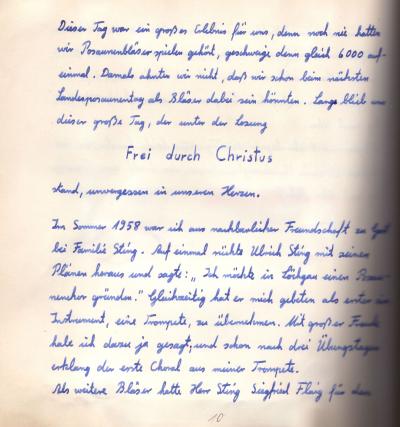 Dieser Tag war ein großes Erlebnis für uns, denn noch nie hatten
wir Posaunenbläser spielen gehört, geschweige denn gleich 6000 auf-
einmal. Damals ahnten wir nicht, daß wir schon beim nächsten
Landesposaunentag als Bläser dabei sein könnten. Lange blieb uns
dieser große Tag, der unter der Losung
Frei durch Christus
stand, unvergessen in unseren Herzen.
Im Sommer 1958 war ich aus nachbarlicher Freundschaft zu Gast
bei Familie Sting. Auf einmal rückte Ulrich Sting mit seinen
Plänen heraus und sagte: "Ich möchte in Löchgau einen Posau-
nenchor gründen." Gleichzeitig hat er mich gebeten als erster ein
Instrument, eine Trompete, zu übernehmen. Mit großer Freude
habe ich dazu ja gesagt, und schon nach drei Übungstagen
erklang der erste Choral aus meiner Trompete.
Als weitere Bläser hatte Herr Sting Siegfried Flaig für den
10